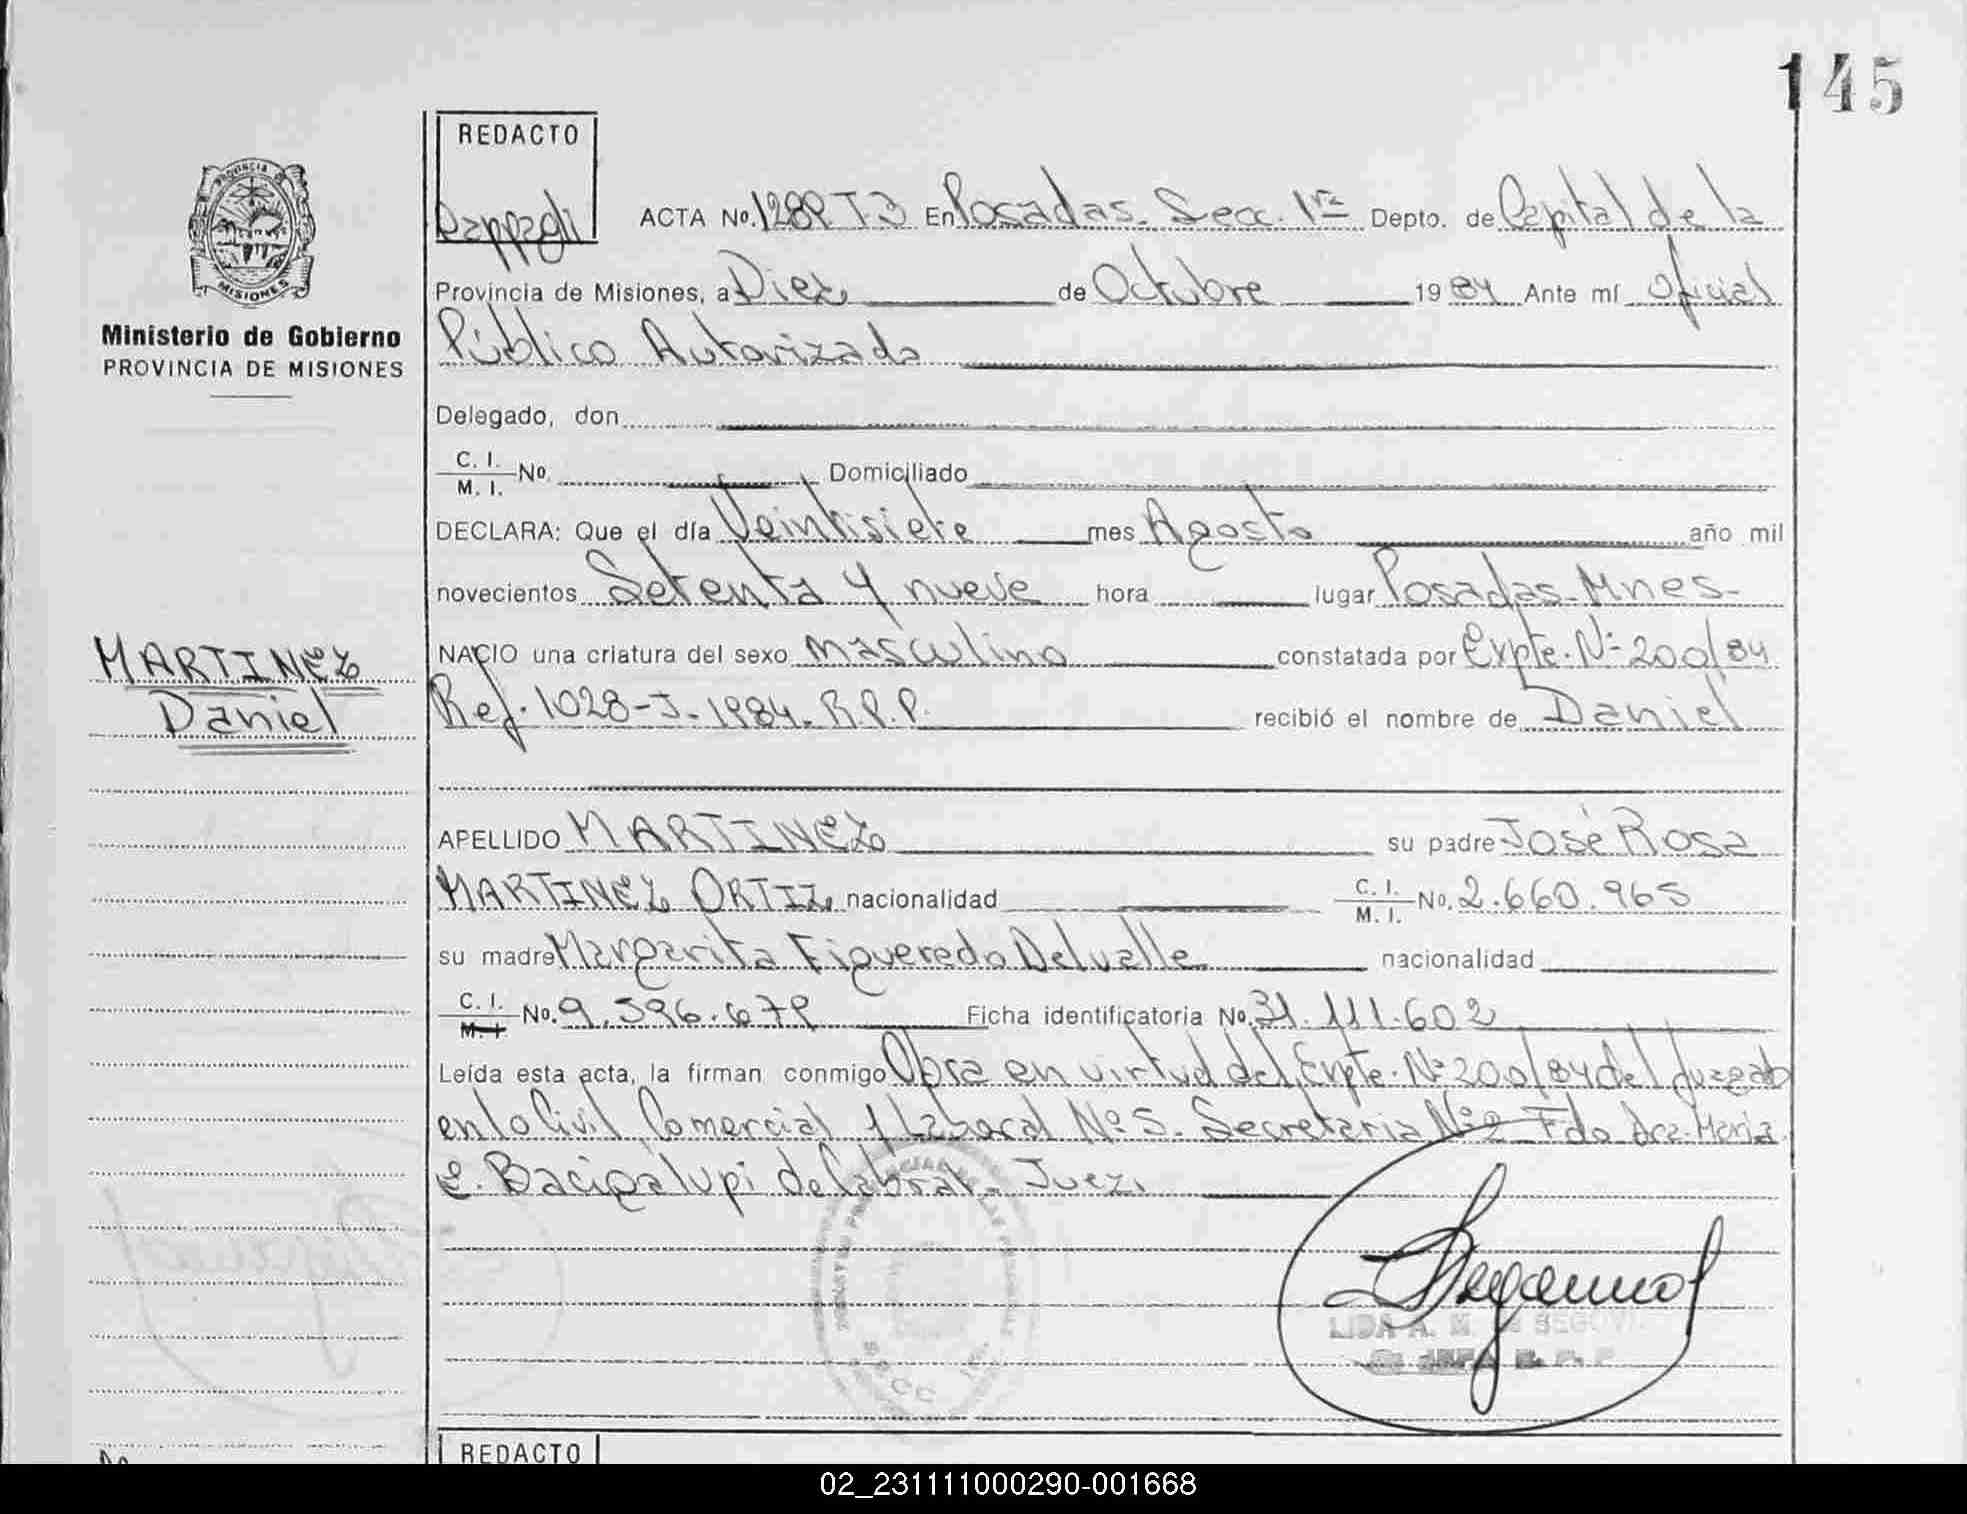 145
REDACTO
Dappagli
ACTA No. 1289 T3 En Posadas. Secc. 1ra Depto. de Capital de la
Provincia de Misiones, a Diez de Octubre 1984 Ante mí Oficial
Público Autorizado
Delegado, don
C. I. / M. I. No. Domiciliado
DECLARA: Que el día Veintisiete mes Agosto año mil
novecientos Setenta y nueve hora lugar Posadas-Mnes-
NACIO una criatura del sexo masculino constatada por Expte. Nº 200/84
Ref. 1028-J-1984. R.P.P. recibió el nombre de Daniel
APELLIDO MARTINEZ su padre José Rosa
MARTINEZ ORTIZ nacionalidad C. I. / M. I. No. 2.660.965
su madre Margarita Figueredo Delvalle nacionalidad
C. I. / M. I. No. 9.596.679 Ficha identificatoria No. 31.111.602
Leída esta acta, la firman conmigo Obra en virtud del Expte. Nº 200/84 del Juzgado
en lo Civil, Comercial y Laboral Nº 5. Secretaria Nº 2 Fdo Dra. Maria
E. Bacigalupi de Cabral. Juez.
LIDA A. SEGOVI
SECC
PROVINCIA DE MISIONES
Ministerio de Gobierno
PROVINCIA DE MISIONES
MARTINEZ
Daniel
REDACTO
02_231111000290-001668